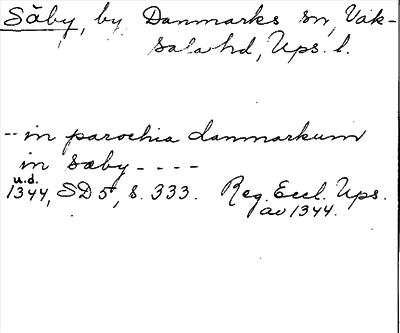 Säby, by Danmarks sn, Vak-
sala hd, Ups. l.
-- in parochia danmarkum
in sæby - - - -
u.d.
1344, SD 5, s. 333. Reg. Eccl. Ups.
av 1344.